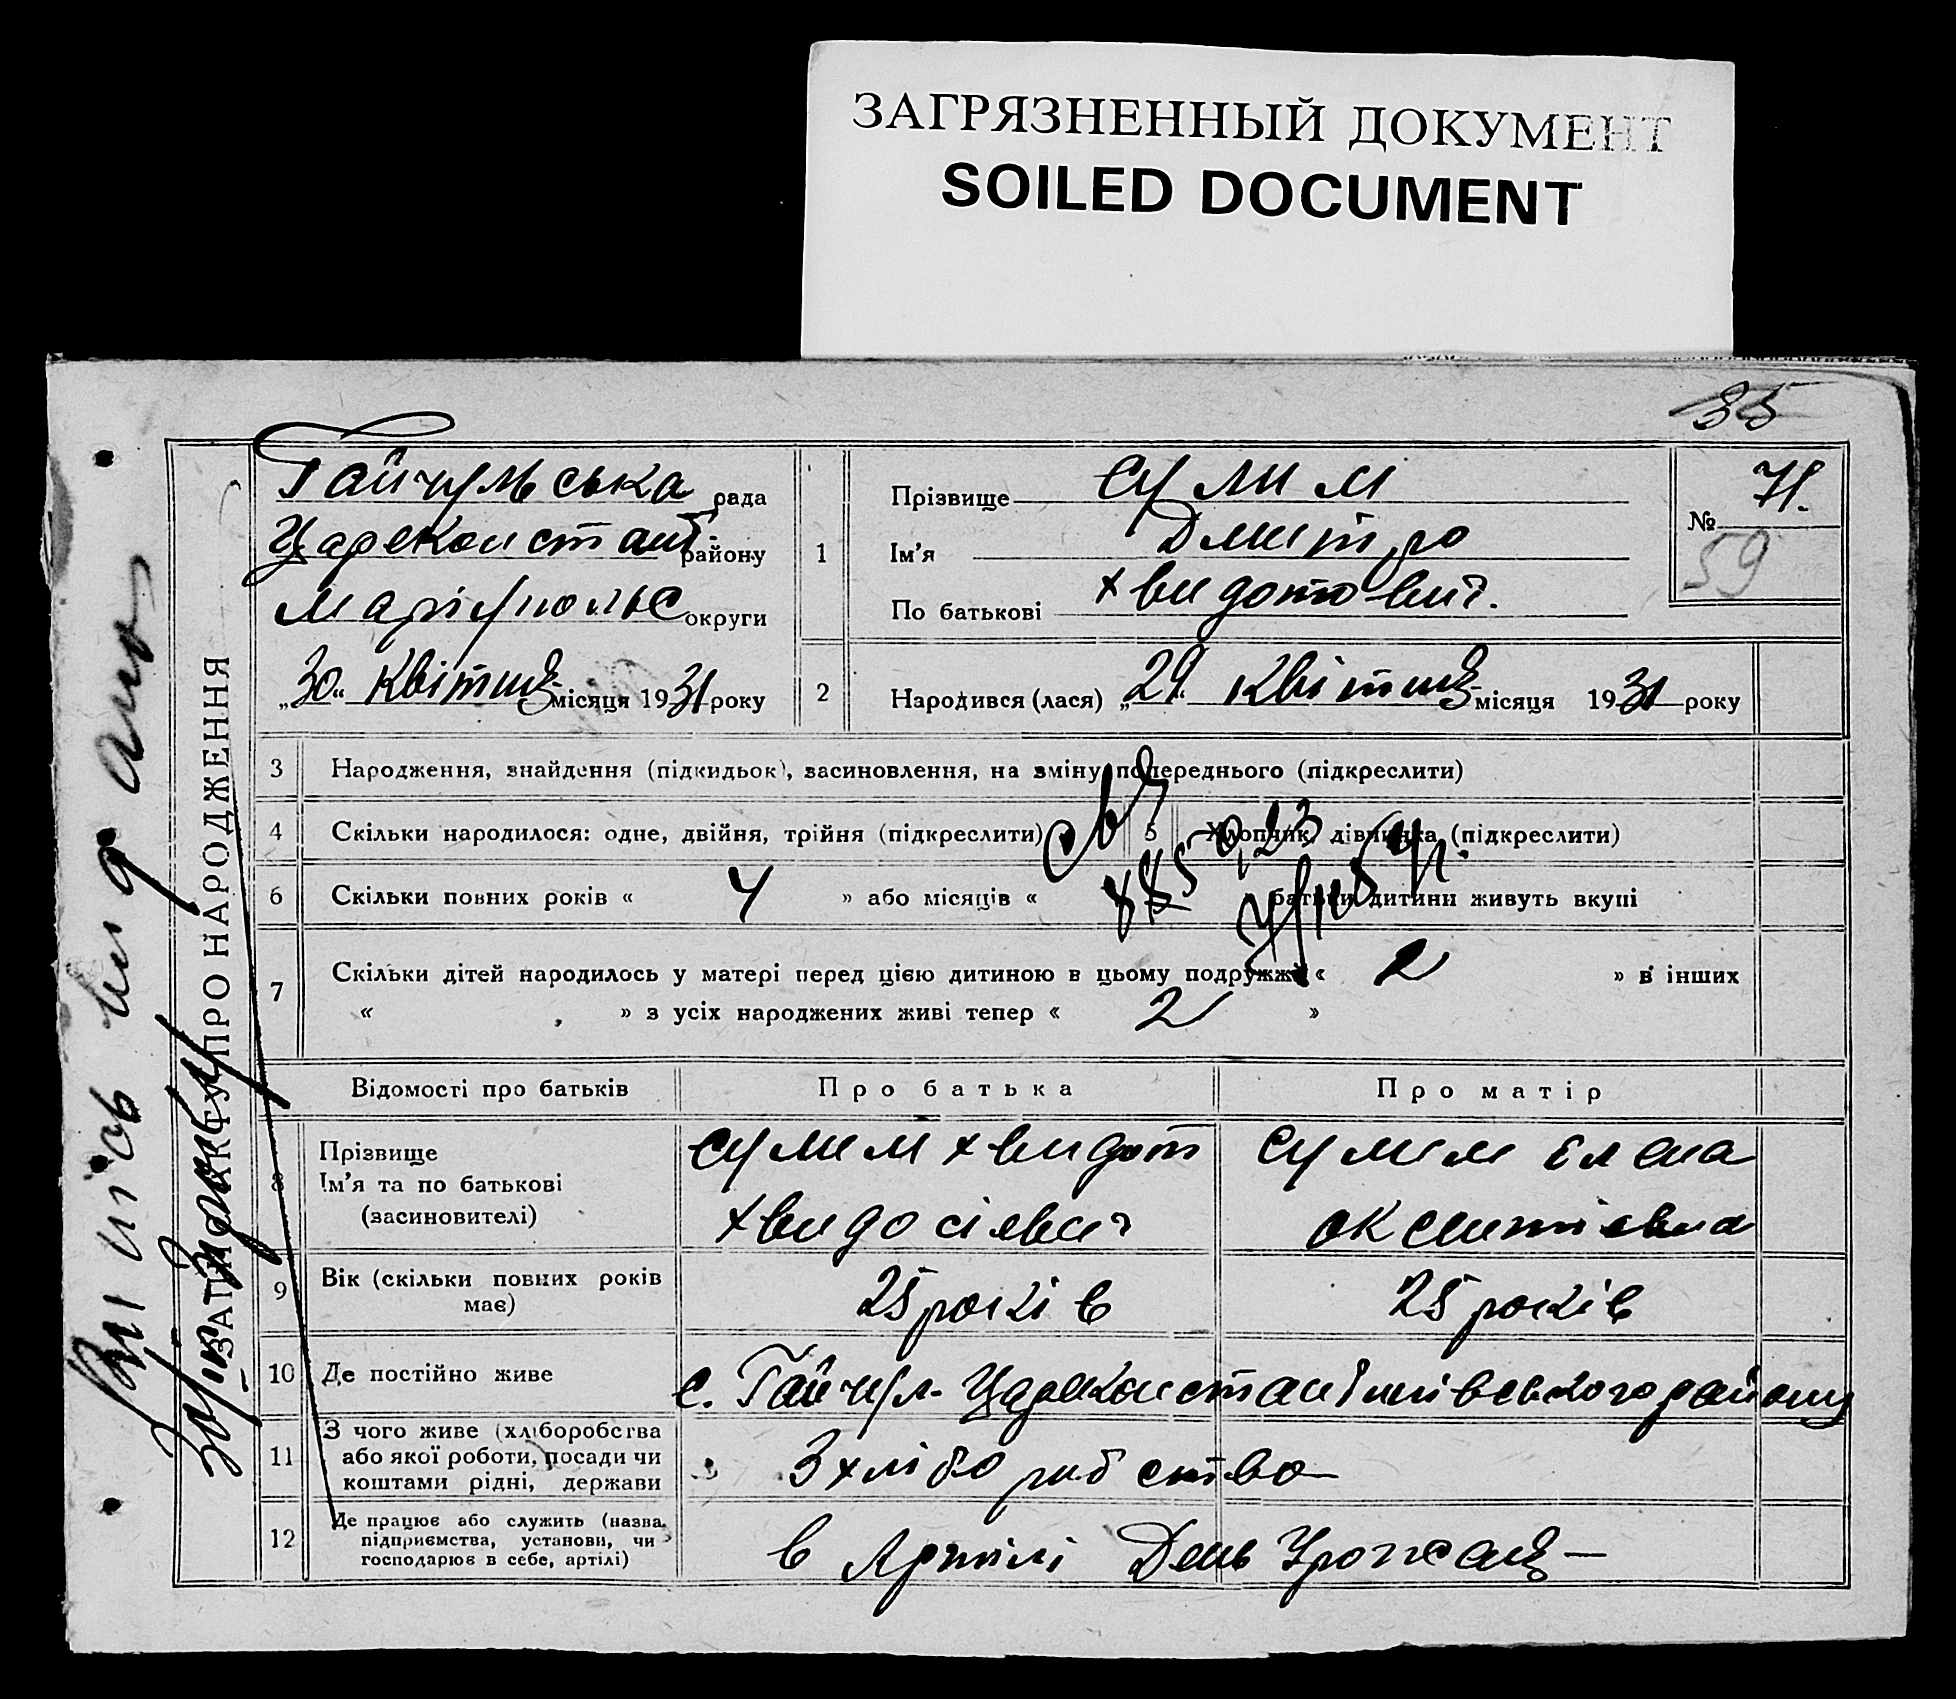 ЗАГРЯЗНЕННЫЙ ДОКУМЕНТ
SOILED DOCUMENT
35
ЗАПИС АКТУ ПРО НАРОДЖЕННЯ
Гайчульська рада
Царекостант. району
Маріупольс округи
„30“ Квітня місяця 1931 року
1
Прізвище Сулим
Ім’я Дмитро
По батькові Хвидотович.
№ 71.
59
2
Народився (лася) „29“ Квітня місяця 1931 року
3 Народження, знайдення (підкидьок), засиновлення, на зміну попереднього (підкреслити)
4 Скільки народилося: одне, двійня, трійня (підкреслити) 5 Хлопчик, дівчинка (підкреслити)
6 Скільки повних років « 4 » або місяців « батьки дитини живуть вкупі
7 Скільки дітей народилось у матері перед цією дитиною в цьому подружжі « 2 » в інших
« » з усіх народжених живі тепер « 2 »
Відомості про батьків Про батька Про матір
8 Прізвище
Ім’я та по батькові
(засиновителі)
Сулим Хвидот
Хвидосієвич
Сулим Елена
Оксентієвна
9 Вік (скільки повних років
має)
25 років 25 років
10 Де постійно живе с. Гайчул. Царекостантинівського району
11 З чого живе (хліборобства
або якої роботи, посади чи
коштами рідні, держави
З хліборобство
12 Де працює або служить (назва
підприємства, установи, чи
господарює в себе, артілі)
в Артілі День Урожая